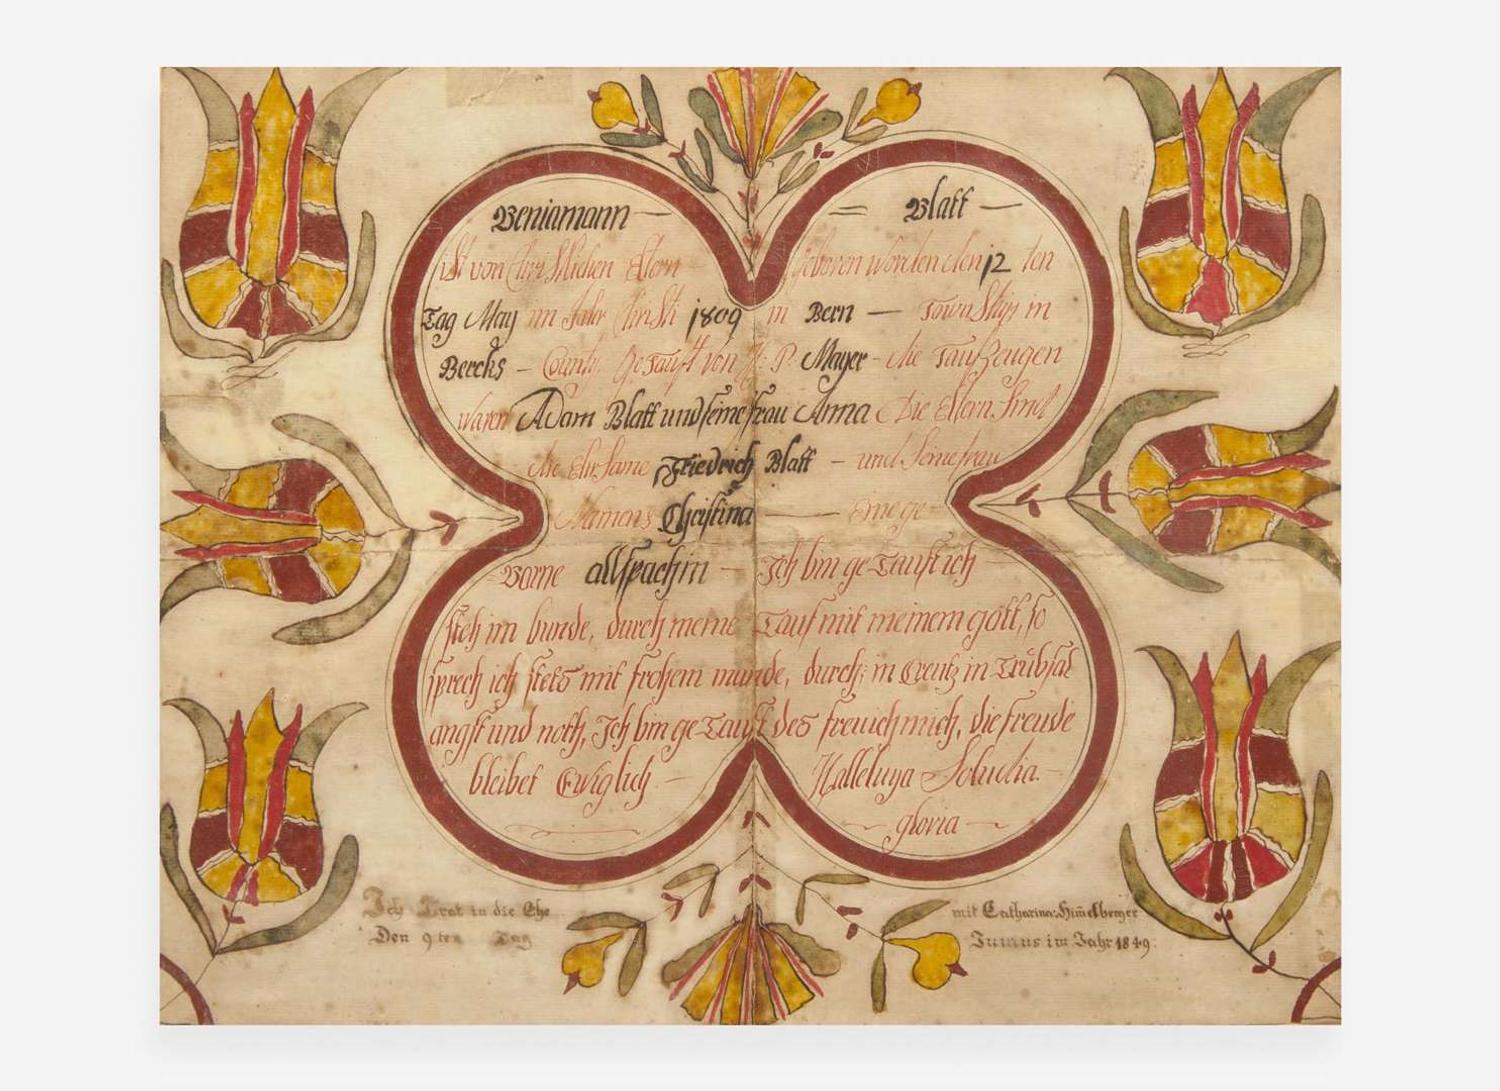 Beniamann — = Blatt —
ist von Christlichen Eltern geboren worden den 12 ten
Tag May im Jahr Christi 1809 in Bern — Township in
Bercks — County Getauft von H: P. Mayer - die Taufzeugen
waren Adam Blatt und seine frau Anna Die Eltern Sind
die Ehrsame Friedrich Blatt — und Seine frau
Namens Christina — eine ge
= Borne allspachin — Ich bin ge Tauft ich
steh im bunde, durch meine Tauf mit meinem gott, so
sprech ich stets mit frohem munde, durch; in Creutz in Trübsal
angst und noth, Ich bin ge Tauft des freu ich mich, die freude
bleibet Ewiglich — Halleluya Soludia. —
— gloria —
Ich Trat in die Ehe mit Catharina Him̅elberger
Den 9ten Tag Junius im Jahr 1849.